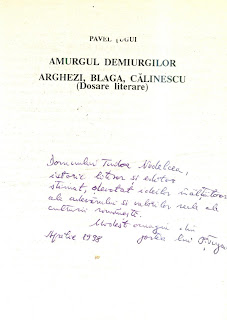 PAVEL ȚUGUI
AMURGUL DEMIURGILOR
ARGHEZI, BLAGA, CĂLINESCU
(Dosare literare)
Domnului Tudor Nedelcea,
istoric literar și editor
stimat, devotat ideilor înălțătoare
ale adevărului și valorilor reale ale
culturii românești.
Modest omagiu din
partea lui
Aprilie 1998